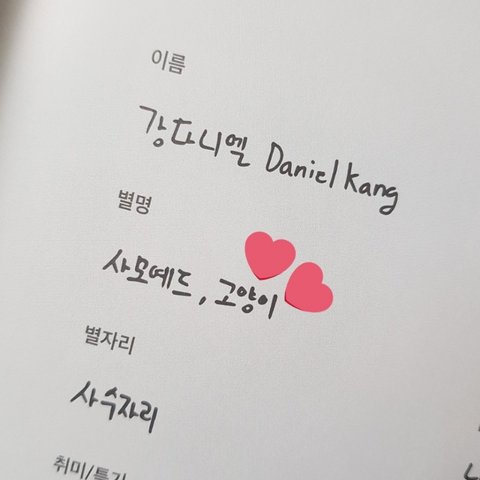 이름
강다니엘 Daniel Kang
별명
사모예드, 고양이
별자리
사수자리
취미/특기